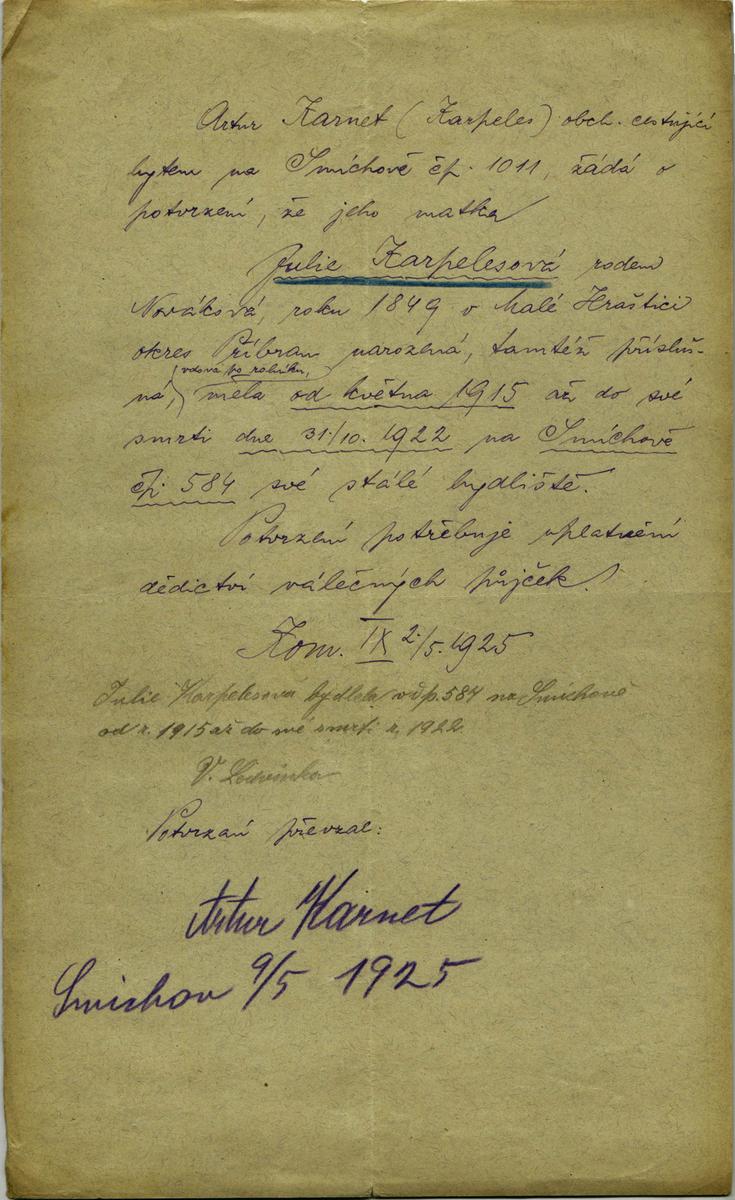 Artur Karnet (Karpeles) obch. cestující
bytem na Smíchově čp. 1011, žádá o
potvrzení, že jeho matka
Julie Karpelesová rodem
Nováková, roku 1849 v Malé Hraštici
okres Příbram narozená, tamtéž přísluš-
(vdova po rolníku,)
ná, měla od května 1915 až do své
smrti dne 31./10. 1922 na Smíchově
čp. 584 své stálé bydliště.
Potvrzení potřebuje uplatnění
dědictví válečných půjček.
Kom. IX 2./5. 1925
Julie Karpelesová bydlela v čp. 584 na Smíchově
od r. 1915 až do své smrti r. 1922
V. Ledvinka
Potvrzení převzal:
Artur Karnet
Smíchov 9/5 1925